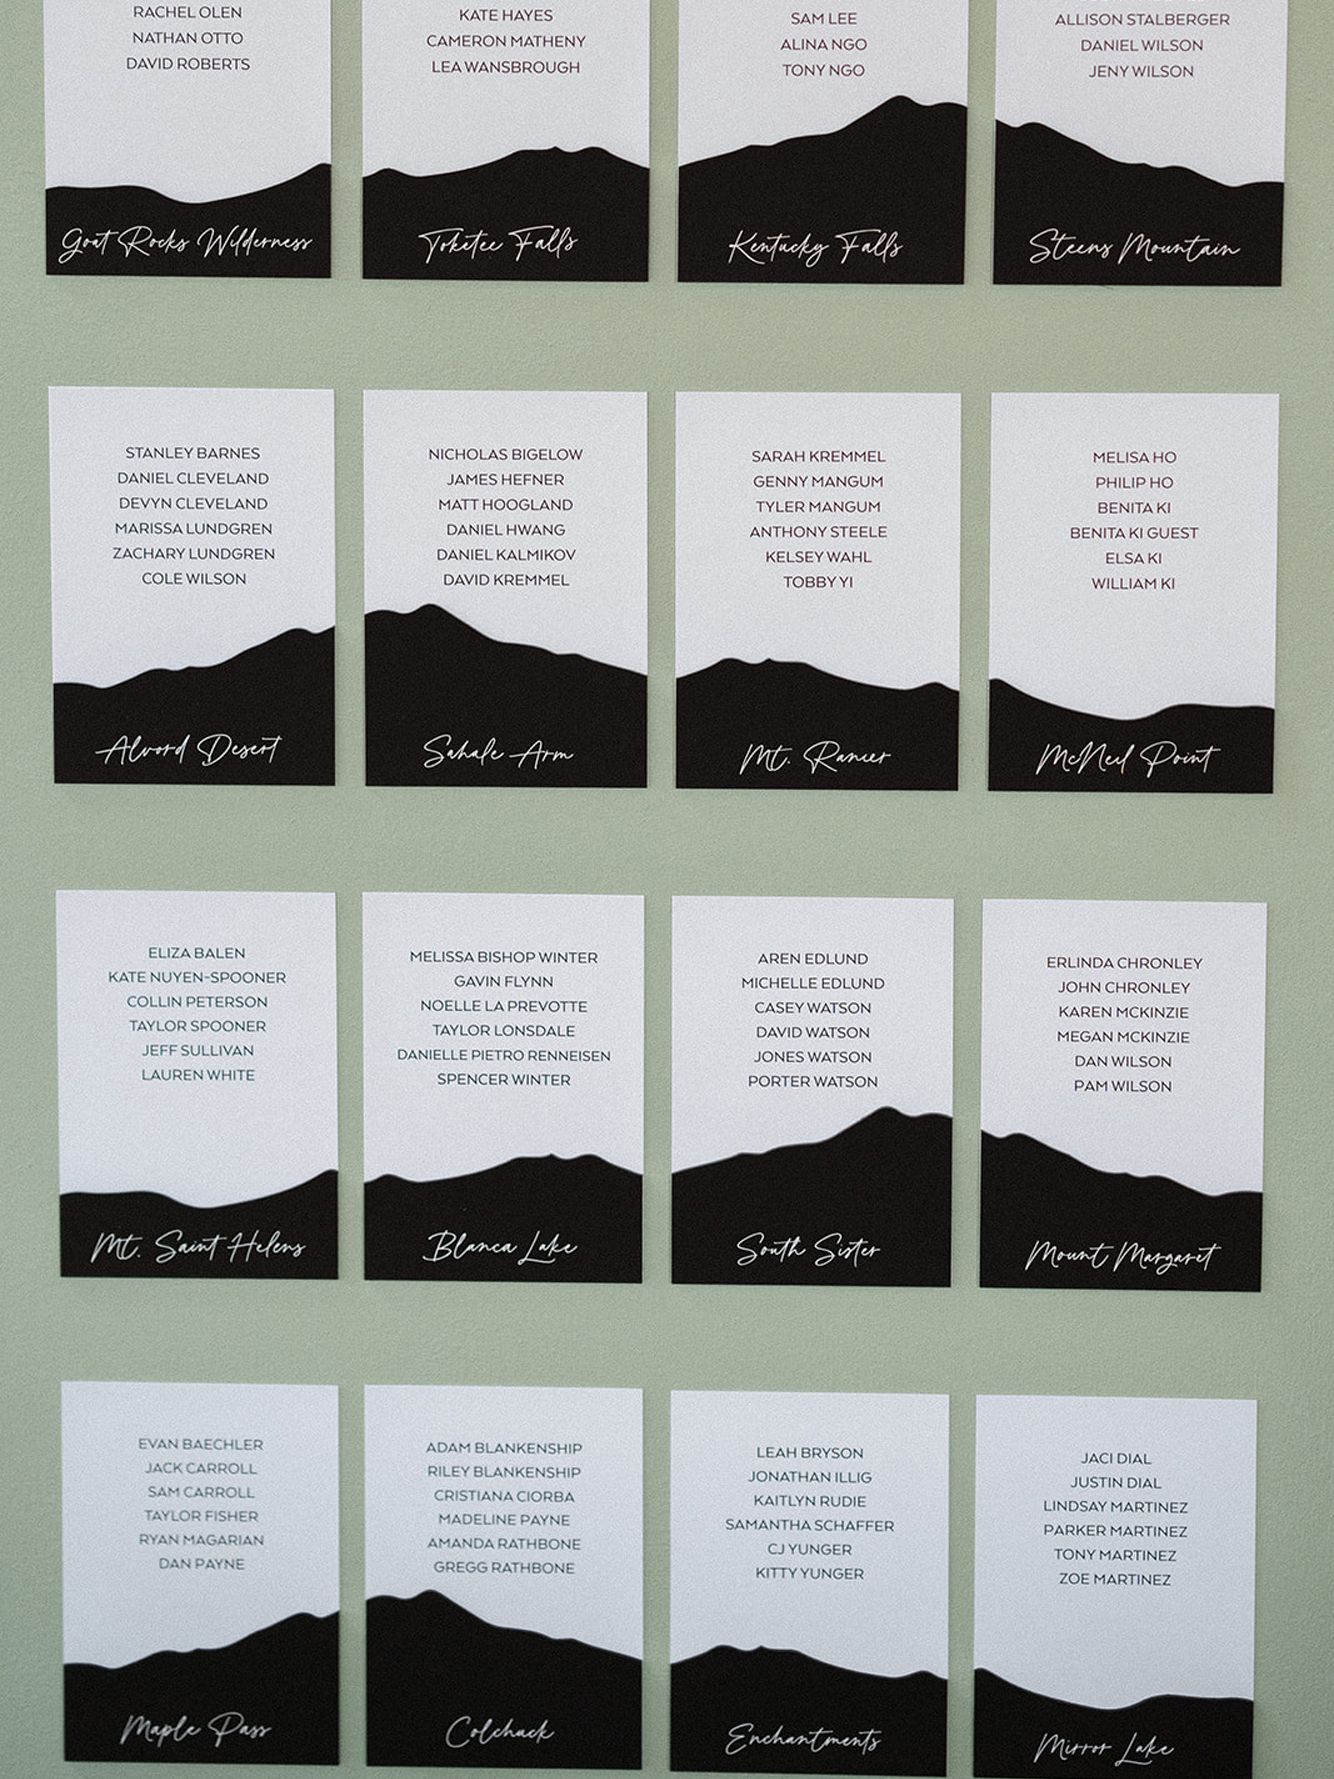 RACHEL OLEN
NATHAN OTTO
DAVID ROBERTS
Goat Rocks Wilderness
KATE HAYES
CAMERON MATHENY
LEA WANSBROUGH
Toketee Falls
SAM LEE
ALINA NGO
TONY NGO
Kentucky Falls
ALLISON STALBERGER
DANIEL WILSON
JENY WILSON
Steens Mountain
STANLEY BARNES
DANIEL CLEVELAND
DEVYN CLEVELAND
MARISSA LUNDGREN
ZACHARY LUNDGREN
COLE WILSON
Alvord Desert
NICHOLAS BIGELOW
JAMES HEFNER
MATT HOOGLAND
DANIEL HWANG
DANIEL KALMIKOV
DAVID KREMMEL
Sahale Arm
SARAH KREMMEL
GENNY MANGUM
TYLER MANGUM
ANTHONY STEELE
KELSEY WAHL
TOBBY YI
Mt. Ranier
MELISA HO
PHILIP HO
BENITA KI
BENITA KI GUEST
ELSA KI
WILLIAM KI
McNeil Point
ELIZA BALEN
KATE NUYEN-SPOONER
COLLIN PETERSON
TAYLOR SPOONER
JEFF SULLIVAN
LAUREN WHITE
Mt. Saint Helens
MELISSA BISHOP WINTER
GAVIN FLYNN
NOELLE LA PREVOTTE
TAYLOR LONSDALE
DANIELLE PIETRO RENNEISEN
SPENCER WINTER
Blanca Lake
AREN EDLUND
MICHELLE EDLUND
CASEY WATSON
DAVID WATSON
JONES WATSON
PORTER WATSON
South Sister
ERLINDA CHRONLEY
JOHN CHRONLEY
KAREN MCKINZIE
MEGAN MCKINZIE
DAN WILSON
PAM WILSON
Mount Margaret
EVAN BAECHLER
JACK CARROLL
SAM CARROLL
TAYLOR FISHER
RYAN MAGARIAN
DAN PAYNE
Maple Pass
ADAM BLANKENSHIP
RILEY BLANKENSHIP
CRISTIANA CIORBA
MADELINE PAYNE
AMANDA RATHBONE
GREGG RATHBONE
Colchuck
LEAH BRYSON
JONATHAN ILLIG
KAITLYN RUDIE
SAMANTHA SCHAFFER
CJ YUNGER
KITTY YUNGER
Enchantments
JACI DIAL
JUSTIN DIAL
LINDSAY MARTINEZ
PARKER MARTINEZ
TONY MARTINEZ
ZOE MARTINEZ
Mirror Lake